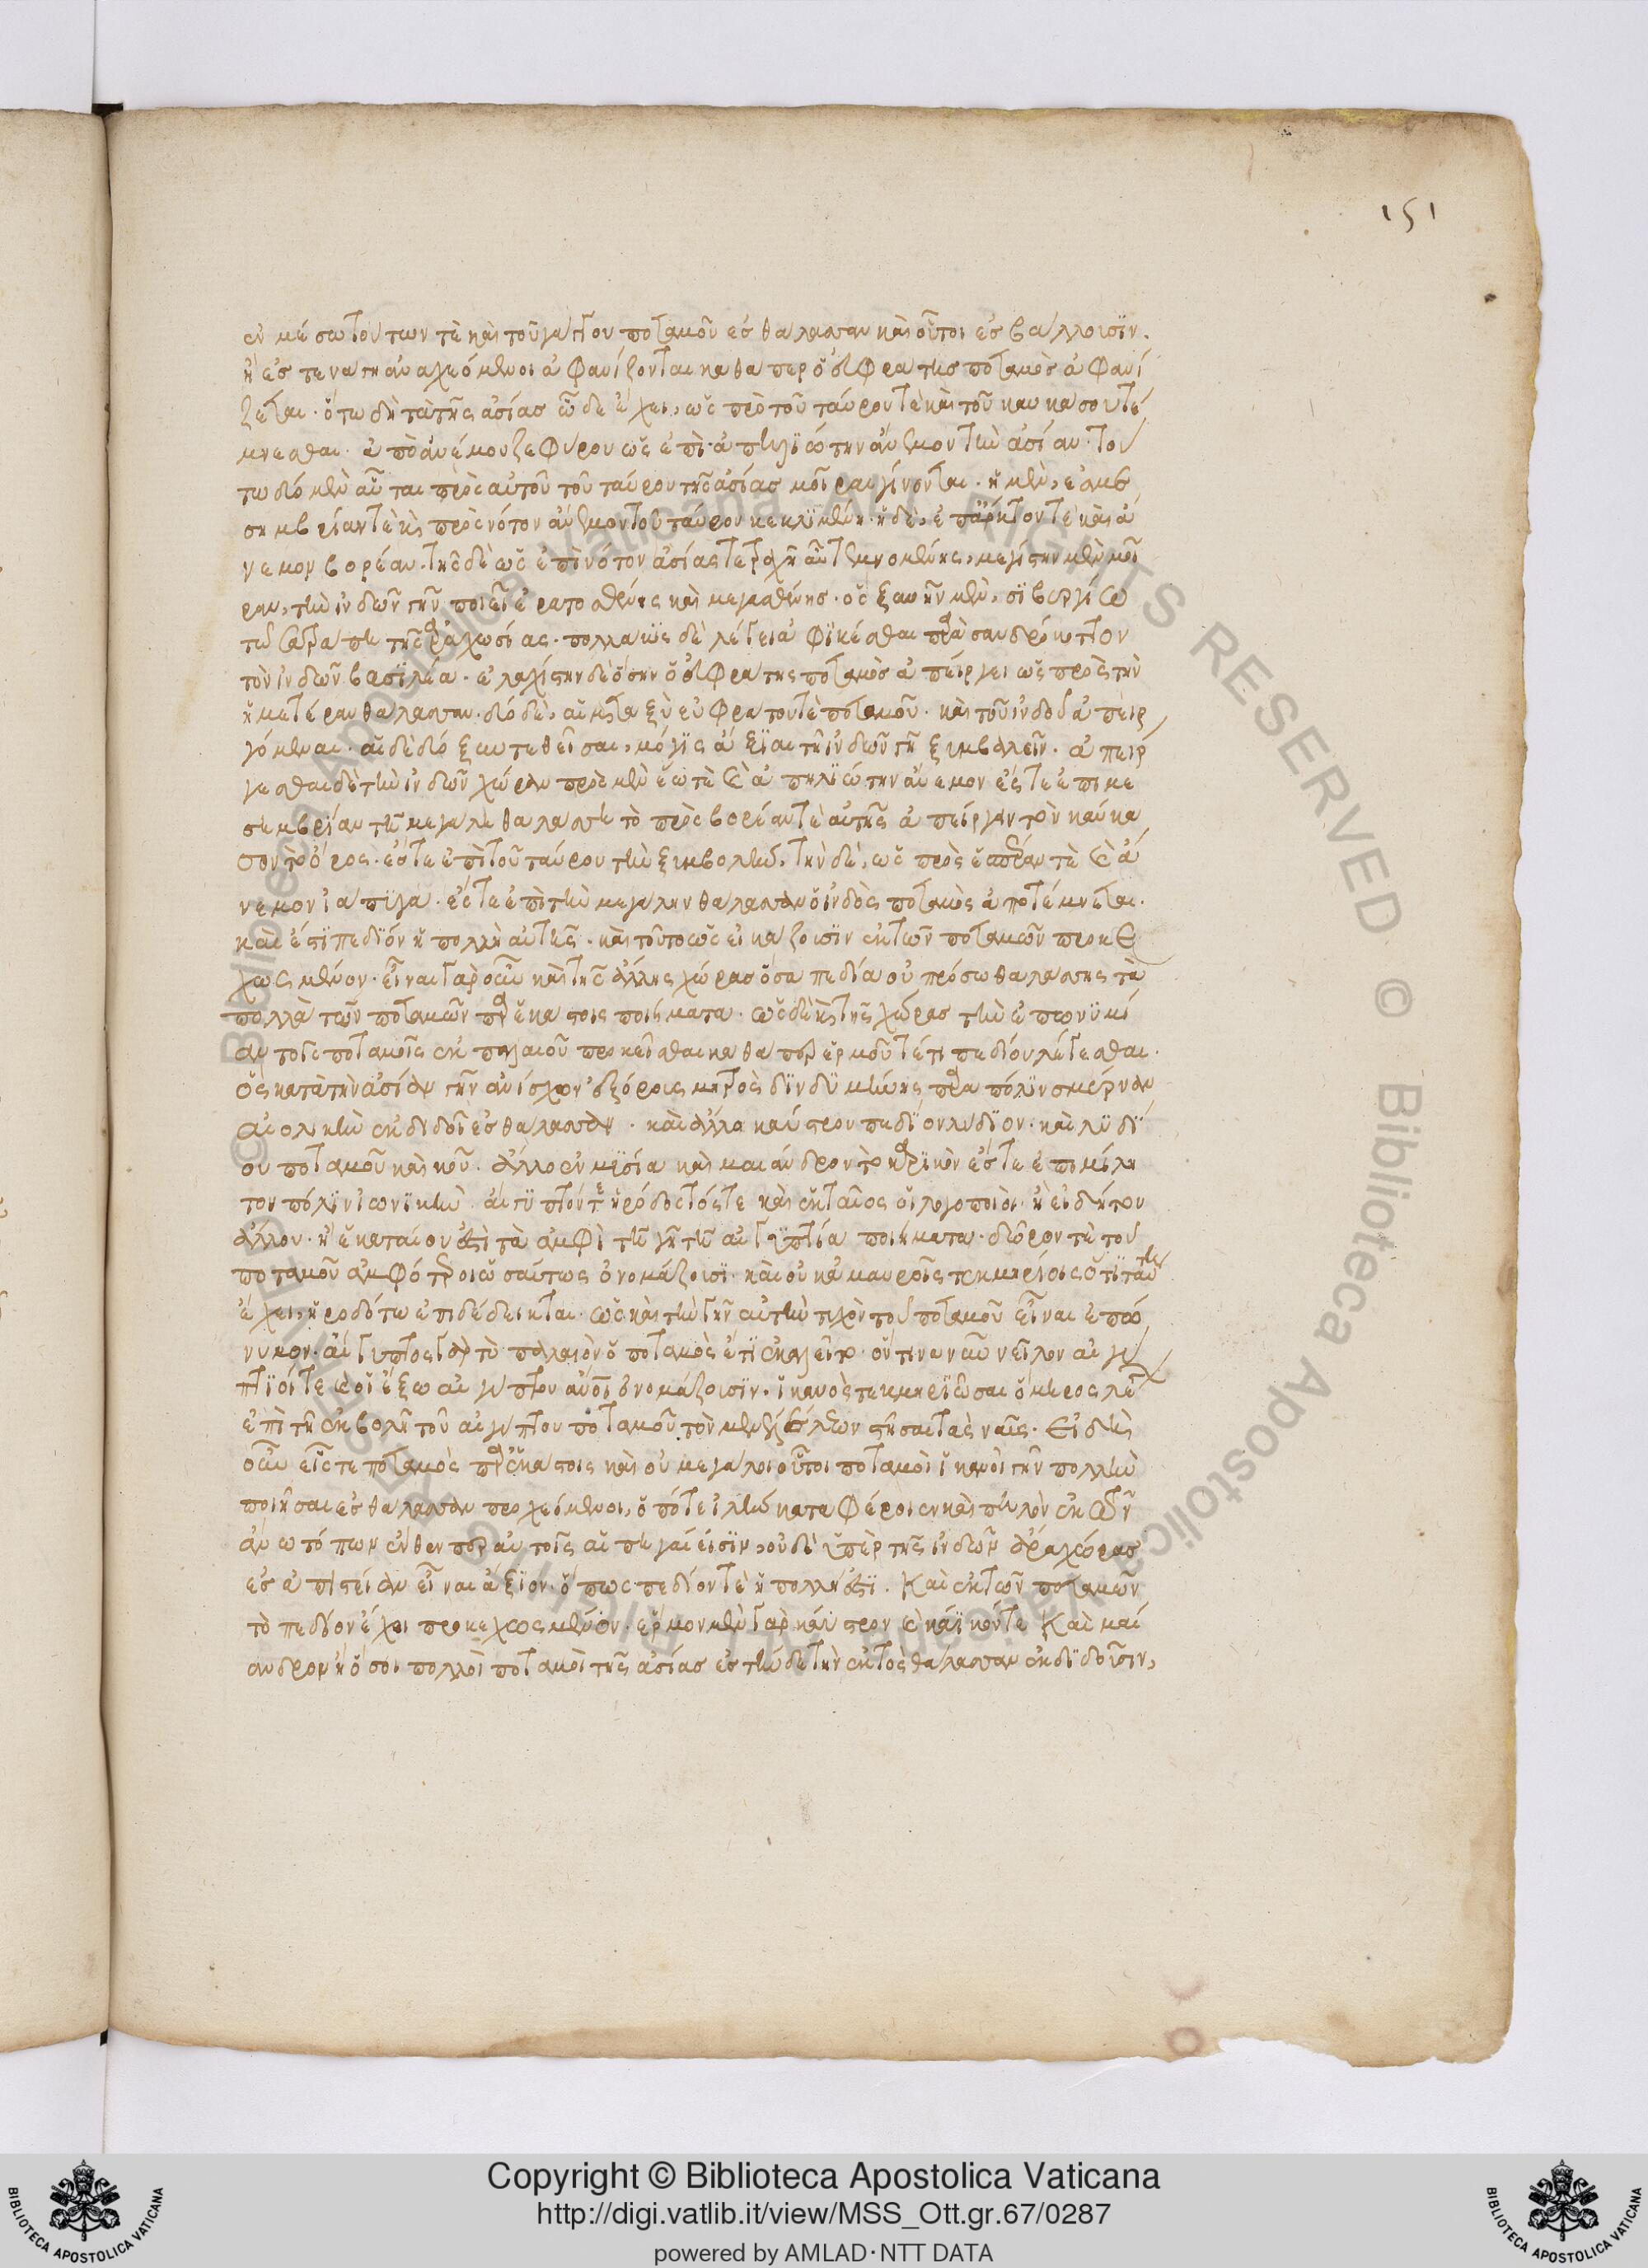 151
ἐν μέσω τούτων τὲ καὶ τοῦ γάγγου ποταμοῦ ἐς θάλασσαν καὶ οὗτοι ἐσβάλλουσϊν.
ἢ ἐς τενάγη ἀναχεόμενοι ἀφανίζονται καθάπερ ὁ εὐφράτης ποταμὸς ἀφανί
ζεται. ὅτω δὴ τὰ τῆς ἀσίας ὧδε ἔχει, ὡς πρὸ τοῦ ταύρου τὲ καὶ τοῦ καυκάσου τέ
μνεσθαι. ἀπὸ ἀνέμου ζεφύρου ὡς ἐπὶ ἀπηλϊώτην ἄνεμον τὴν ἀσίαν. τού
τω δύο μὲν αὗται πρὸς αὐτοῦ τοῦ ταύρου τῆς ἀσίας μοῖραι γίνονται. ἡ μὲν, ἐς με
σημβρίαν τὲ καὶ πρὸς νότον ἄνεμον τοῦ ταύρου κεκλϊμένη. ἡ δὲ, ἐπ' ἄρκτον τὲ καὶ ἄ
νεμον βορέαν. τῆς δὲ ὡς ἐπὶ νότον ἀσίας τετραχῆ αὖ τεμνομένης, μεγίστην μὲν μοῖ
ραν, τὴν ἰνδῶν γῆν ποιεῖ ἐρατοσθένης καὶ μεγασθένης. ὃς ξυνῆν μὲν, σϊβυρτίω
τῶ σατράπη τῆς ἀραχωσίας. πολλάκϊς δὲ λέγει ἀφϊκέσθαι παρὰ σανδρόκοττον
τὸν ἰνδῶν βασϊλέα. ἐλαχίστην δὲ ὅσην ὁ εὐφράτης ποταμὸς ἀπείργει ὡς πρὸς τὴν
ἡμετέραν θάλασσαν. δύο δὲ, αἱ μεταξὺ εὐφράτου τὲ ποταμοῦ. καὶ τοῦ ἰνδοῦ ἀπειρ
γόμεναι. αἱ δὲ δύο ξυντεθεῖσαι, μόλϊς ἄξϊαι τῆ ἰνδῶν γῆ ξυμβαλεῖν. ἀπείρ
γεσθαι δὲ τὴν ἰνδῶν χώραν πρὸς μὲν ἕω τὲ καὶ ἀπηλϊώτην ἄνεμον ἔστε ἐπὶ με
σημβρίαν τῆ μεγάλη θαλάσση τὸ πρὸς βορέαν τὲ αὐτῆς ἀπείργειν τὸν καύκα
σον τὸ ὄρος. ἔστε ἐπὶ τοῦ ταύρου τὴν ξυμβολήν. τὴν δὲ, ὡς πρὸς ἑσπέραν τὲ καὶ ἄ
νεμον ἰάπϊγα. ἔστε ἐπὶ τὴν μεγάλην θάλασσαν ὁ ἰνδὸς ποταμὸς ἀποτέμνεται.
καὶ ἔστϊ πεδϊόν ἡ πολλὴ αὐτῆς. καὶ τοῦτο ὡς εἰκάζουσϊν ἐκ τῶν ποταμῶν προκε
χωσμένον. εἶναι γὰρ οὖν καὶ τῆς ἄλλης χώρας ὅσα πεδία οὐ πρόσω θαλάσσης τὰ
πολλὰ τῶν ποταμῶν παρ' ἑκάστοις ποιήματα. ὡς δὲ καὶ τῆς χώρας τὴν ἐπωνϋμί
αν τοῖς ποταμοῖς ἐκ παλαιοῦ προκεῖσθαι καθάπερ ἕρμου τέ τι πεδίον λέγεσθαι.
ὃς κατὰ τὴν ἀσίαν γῆν ἀνίσχων ἐξ ὄρους μητρὸς δϊνδϋμήνης παρὰ πόλϊν σμύρναν
αἰολικὴν ἐκδιδοῖ ἐς θάλασσαν. καὶ ἄλλο καΰστρου πεδϊον λυδϊον. καὶ λϋδί
ου ποταμοῦ καὶ κου. ἄλλο ἐν μϋσία καὶ μαιάνδρου τὸ καρϊκὸν ἔστε ἐπὶ μίλη
τον πόλϊν ἰωνϊκὴν. αἴγϋπτόν τε ἡρόδοτός τε καὶ ἑκταῖος οἱ λογοποιοὶ. ἢ εἰ δή του
ἄλλου. ἢ ἑκαταίου ἐστὶ τὰ ἀμφὶ τῆ γῆ τῆ αἰγυπτία ποιήματα. δῶρον τὲ τοῦ
ποταμοῦ ἀμφότεροι ὡσαύτως ὀνομάζουσϊ. καὶ οὐκ ἀμαυροῖς τεκμηρίοις ὅτϊ ταύτη
ἔχει, ἡροδότω ἐπιδέδεικται. ὡς καὶ τὴν γῆν αὐτὴν τυχὸν τοῦ ποταμοῦ εἶναι ἐπώ
νυμον. αἴγυπτος γὰρ τὸ παλαιὸν ὁ ποταμὸς ὅτϊ ἐκαλεῖτο. ὅντινα νῦν νεῖλον αἰγύ
πτϊοί τε καὶ οἱ ἔξω αἰγύπτου ἄνοι ὀνομάζουσϊν. ἱκανὸς τεκμηρϊῶσαι ὅμηρος λέγ
ἐπὶ τῆ ἐκβολῆ τοῦ αἰγύπτου ποταμοῦ τὸν μενέλεων στῆσαι τὰς νάας. εἰ δὴ
οὖν εἷς τε ποταμὸς παρ' ἑκάστοις καὶ οὐ μεγάλοι οὗτοι ποταμοὶ ἱκανοὶ γῆν πολλὴν
ποιῆσαι ἐς θάλασσαν προχεόμενοι, ὁπότε ἰλὺν καταφέροιεν καὶ πηλὸν ἐκ τῶν
ἄνω τόπων ἔνθεν περ αὐτοῖς αἱ πηγαί εἰσϊν, οὐδὲ ὑπὲρ τῆς ἰνδῶν ἄρα χώρας
ἐς ἀπιστείαν εἶναι ἄξϊον. ὅπως πεδίον τὲ ἡ πολλή ἐστϊ. Καὶ ἐκ τῶν ποταμῶν
τὸ πεδίον ἔχει προκεχωσμένον. ἕρμον μὲν γὰρ καΰστρον καὶ κάϊκόν τε Καὶ μαί
ανδρον ἢ ὅσοι πολλοὶ ποταμοὶ τῆς ἀσίας ἐς τήνδε τὴν ἐκτὸς θάλασσαν ἐκδϊδοῦσιν,
Copyright © Biblioteca Apostolica Vaticana
http://digi.vatlib.it/view/MSS_Ott.gr.67/0287
powered by AMLAD·NTT DATA